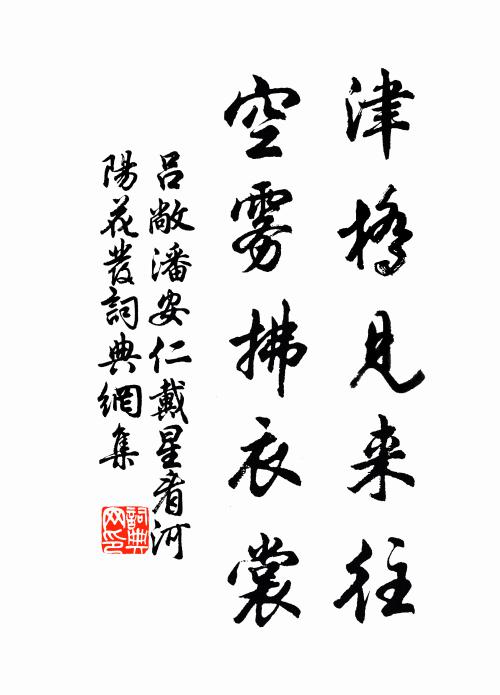 津橋見来往
空雾拂衣裳
吕敞潘安仁戴星看河
陽花發詞典網集
詞典网印